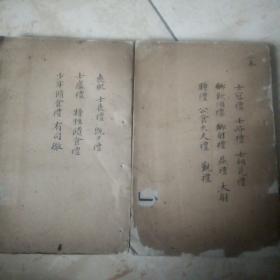 士冠禮 士昏禮 士相見禮
鄉飲酒禮 鄉射禮 燕禮 大射
聘禮 公食大夫禮 覲禮
喪服 士喪禮 既夕禮
士虞禮 特牲饋食禮
少牢饋食禮 有司徹